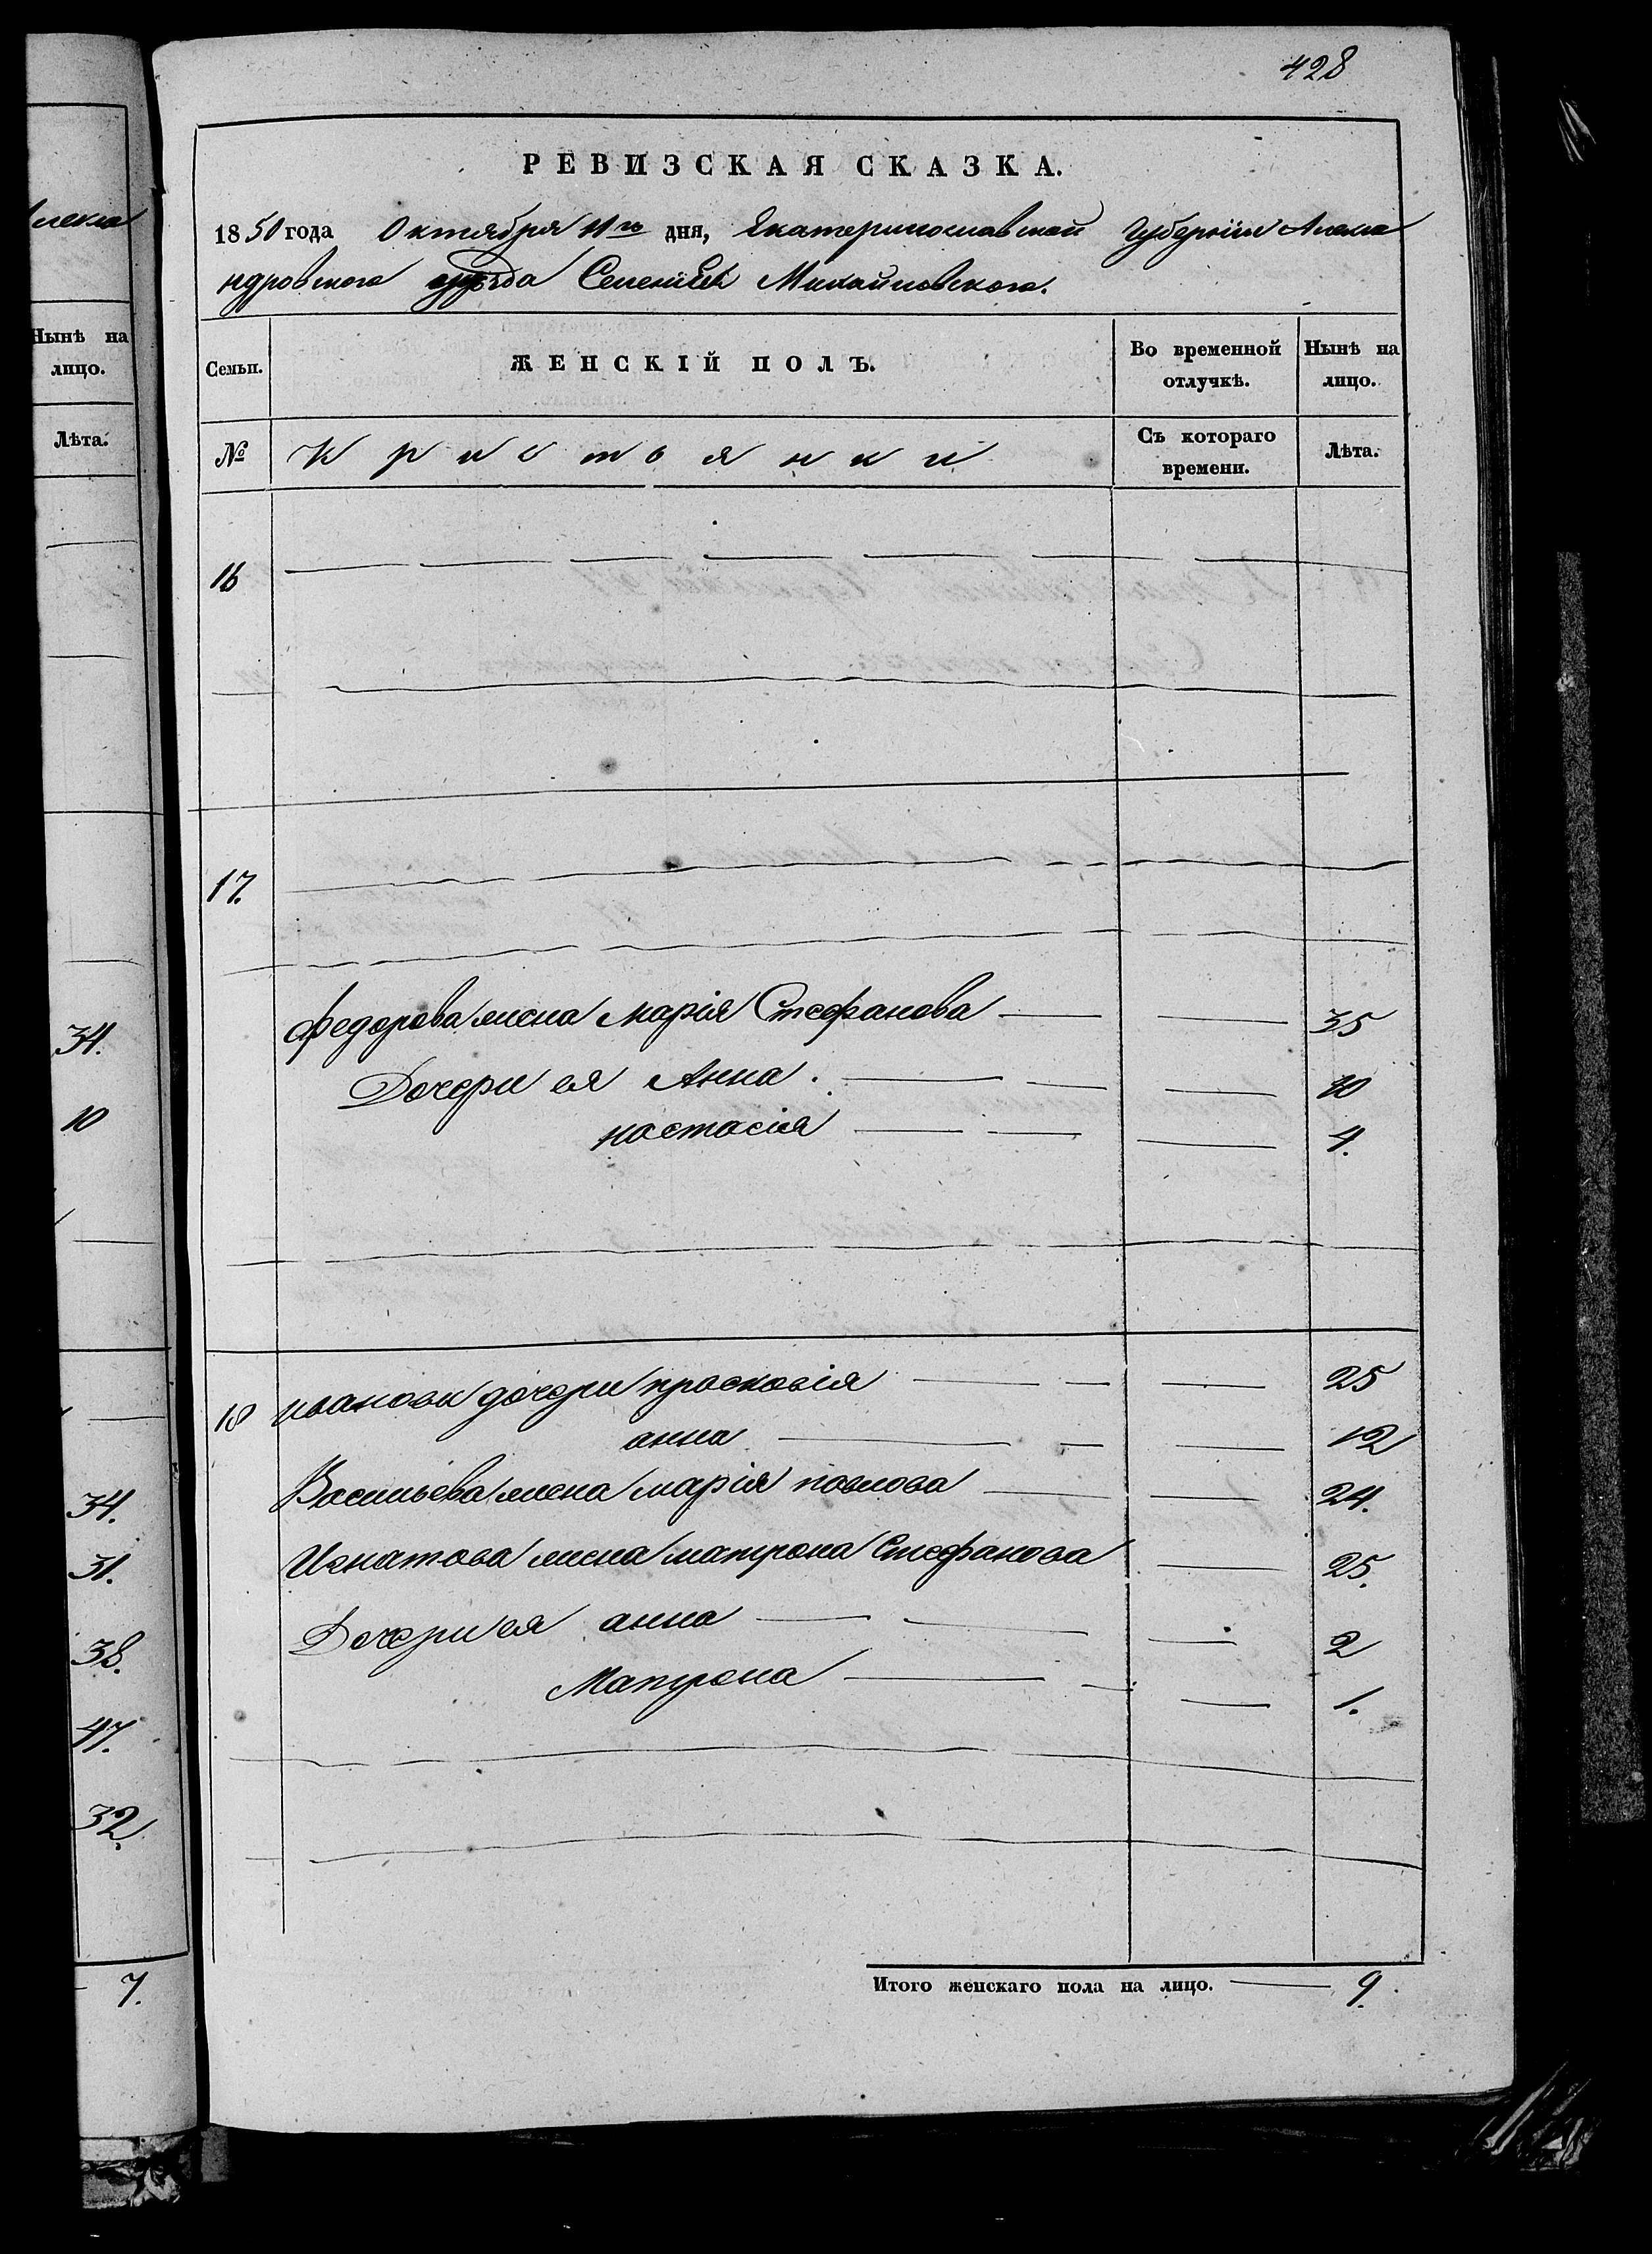 428
РЕВИЗСКАЯ СКАЗКА.
1850 года Октября 11го дня, Екатеринославской Губернии Алекса
ндровского уезда Селения Михайловского.
Семьи. ЖЕНСКІЙ ПОЛЪ. Во временной отлучкѣ. Нынѣ на лицо.
№ Кристьянки Съ котораго времени. Лѣта.
16
17.
Федорова жена Марія Стефанова 35
Дочери ея Анна 10
настасія 4.
18 ивановы дочери прасковія 25
анна 12
Васильева жена марія павлова 24.
Игнатова жена матрона Стефанова 25.
Дочери ея анна 2
Матрона 1.
Итого женскаго пола на лицо. 9.
Нынѣ на
лицо.
Лѣта.
34.
10
34.
31.
38.
47.
32.
7.